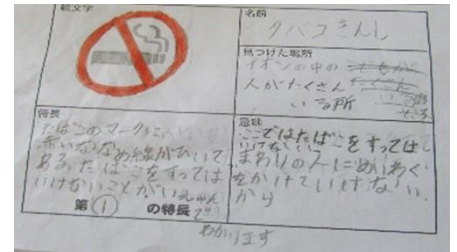 絵文字
名前
タバコきんし
見つけた場所
イオンの中の
人がたくさん
いる所
特長
たばこのマークに
赤いななめ線がひいて
ある。たばこをすっては
いけないことがい
第①の特長
わかります
意味
ここではたばこをすっては
いけない。
まわりの人にめいわく
をかけていけない
から